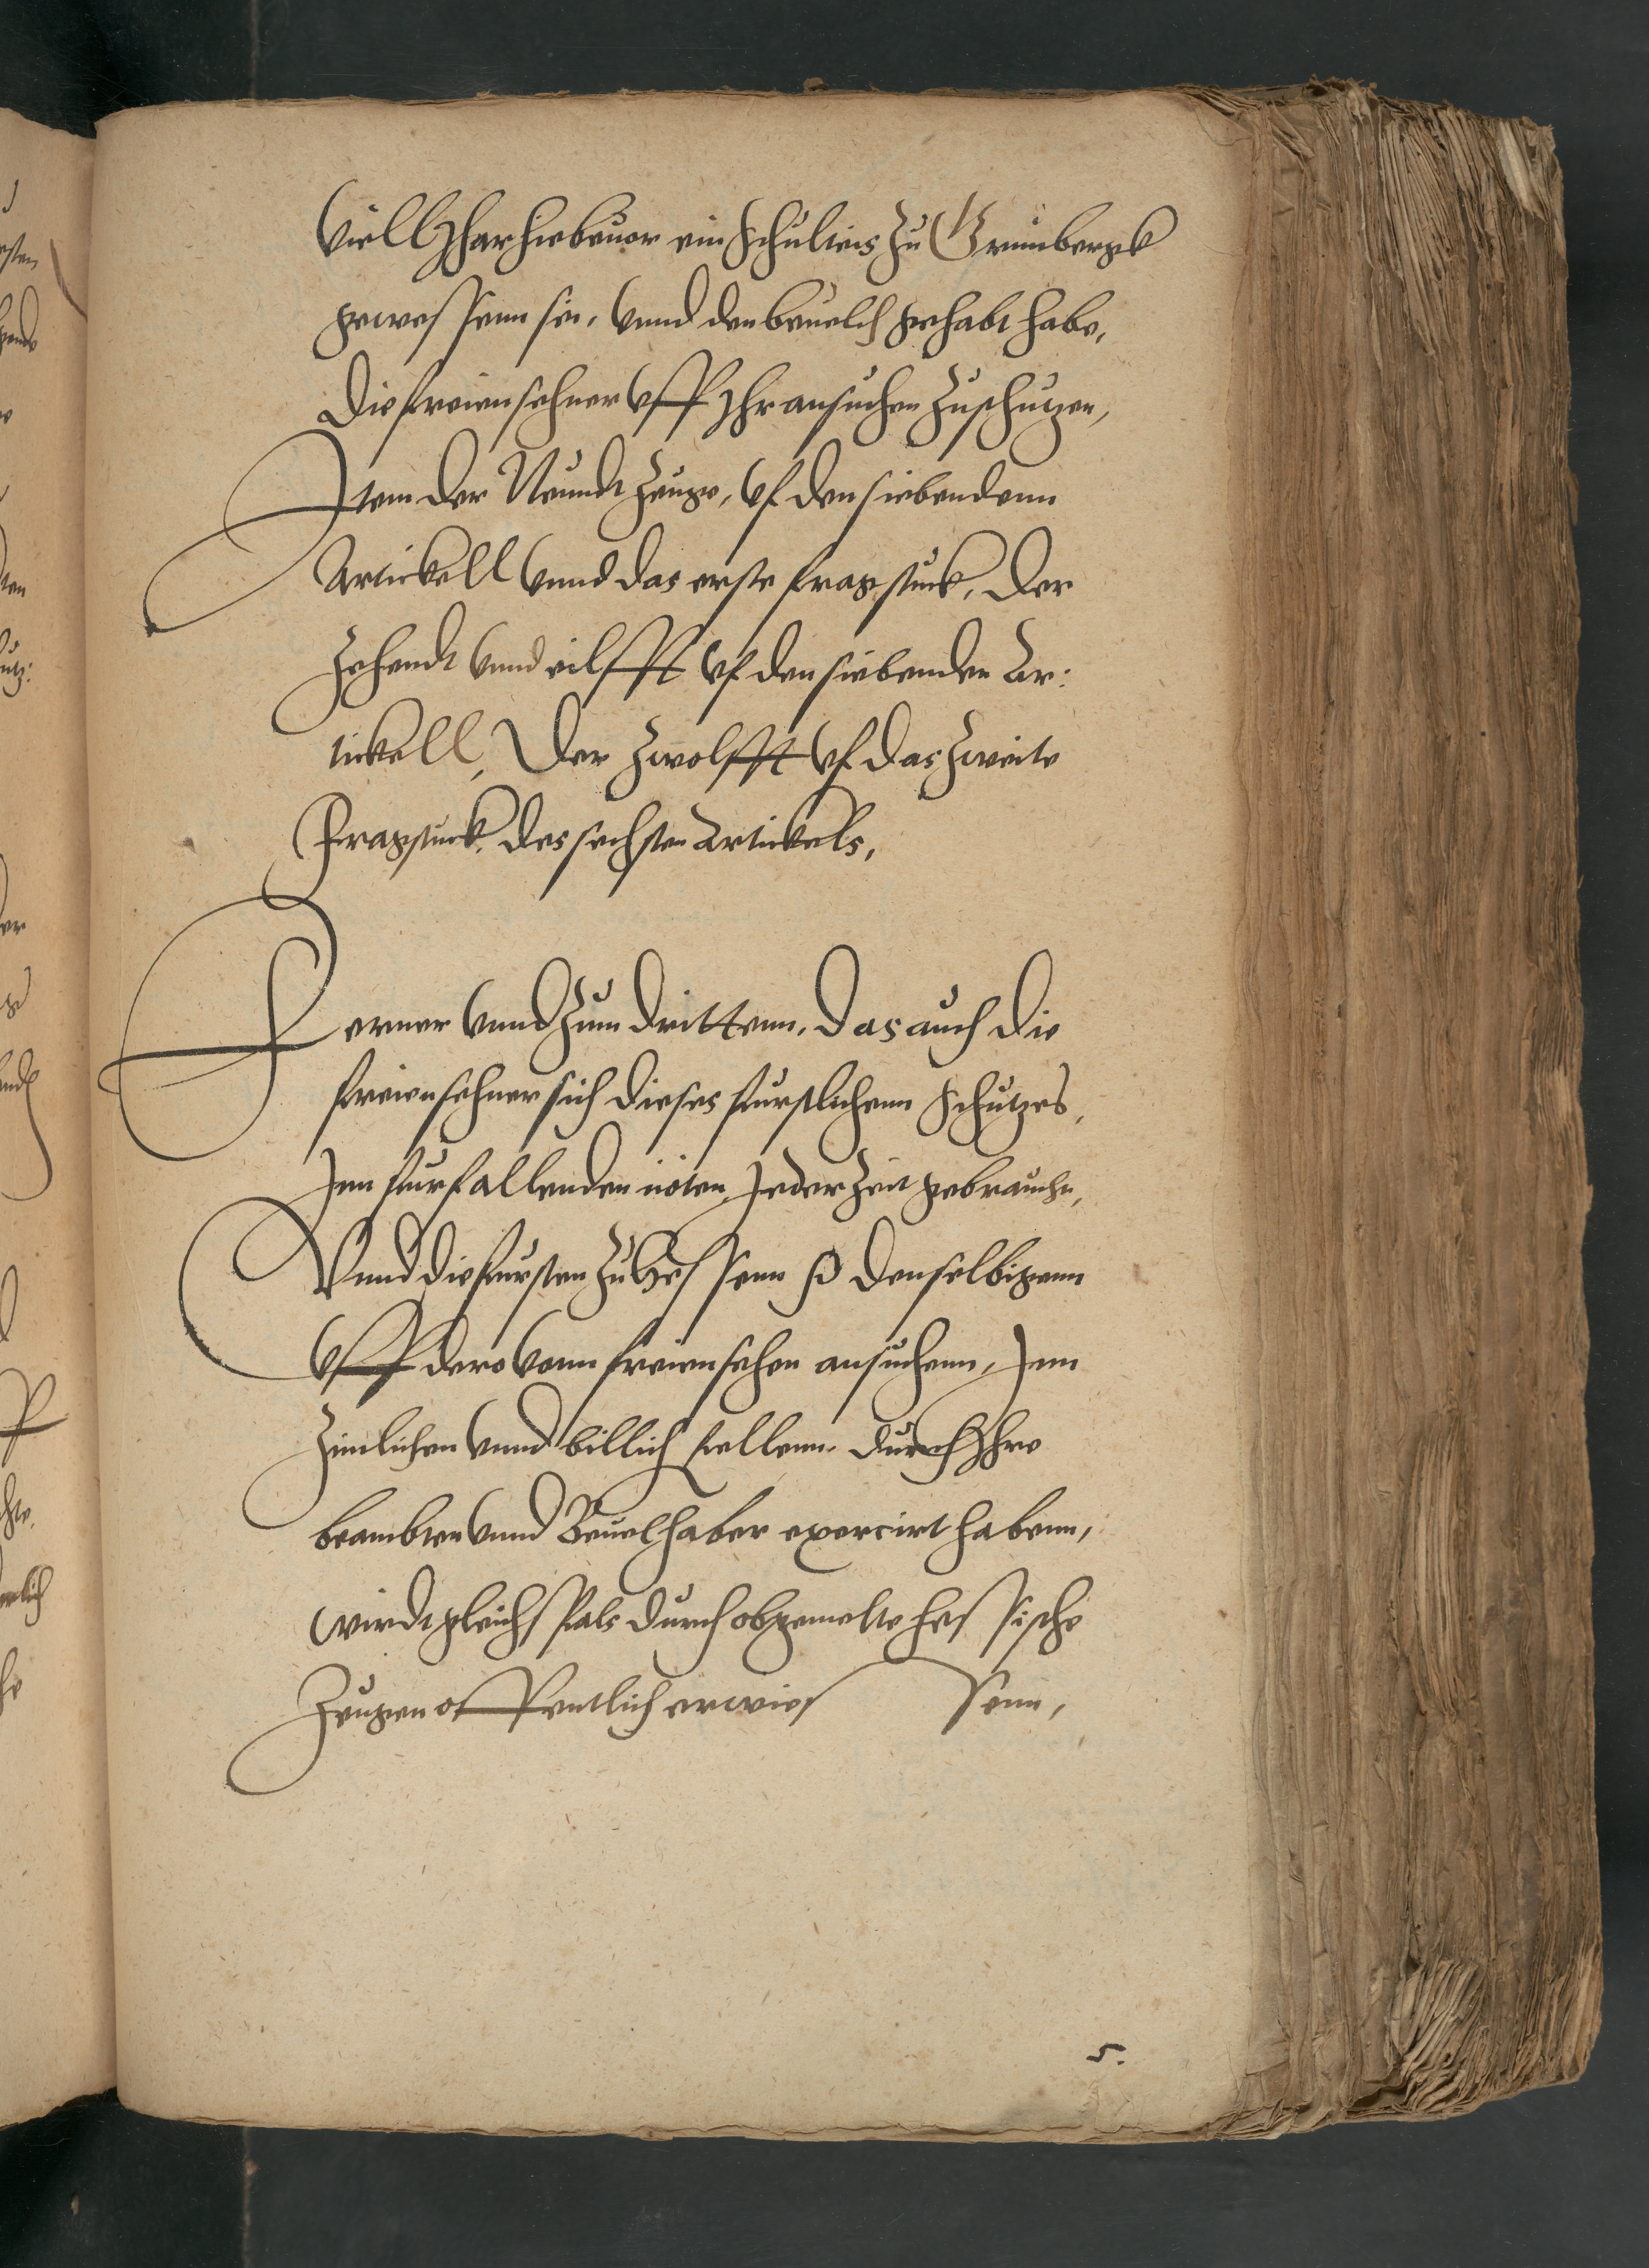 Viell Jhar hiebeuor ein Schultes zu Grunbergk
gewessenn sei, vnnd den beuelch gehabt habe,
Die freiensehner vff Ihr ansuchen zuschutzen,
Item der Neundt Zeuge, vf den siebendenn
Artickell vnnd das erste fragstuck, Der
Zehendt vnnd eilfft vf den siebenden Ar:
tickell, Der Zwolfft vf das Zweite
Fragstuck des sechsten Artickels,
Ferner vnnd Zum drittenn, Das auch die
freiensehner sich dieses furstlichenn Schutzes,
Inn furfallenden nöten Jederzeit gebrauche,
Vnnd die fursten zu Hessenn so denselbigenn
vff dero vonn freiensehen ansuchenn, Inn
Zimlichen vnnd billich fellenn durch Ihre
beambten vnnd Beuelhaber exercirt habenn,
wirdt gleichsfals durch obgemelte hessische
Zeugen offentlich erwiessenn,
5.